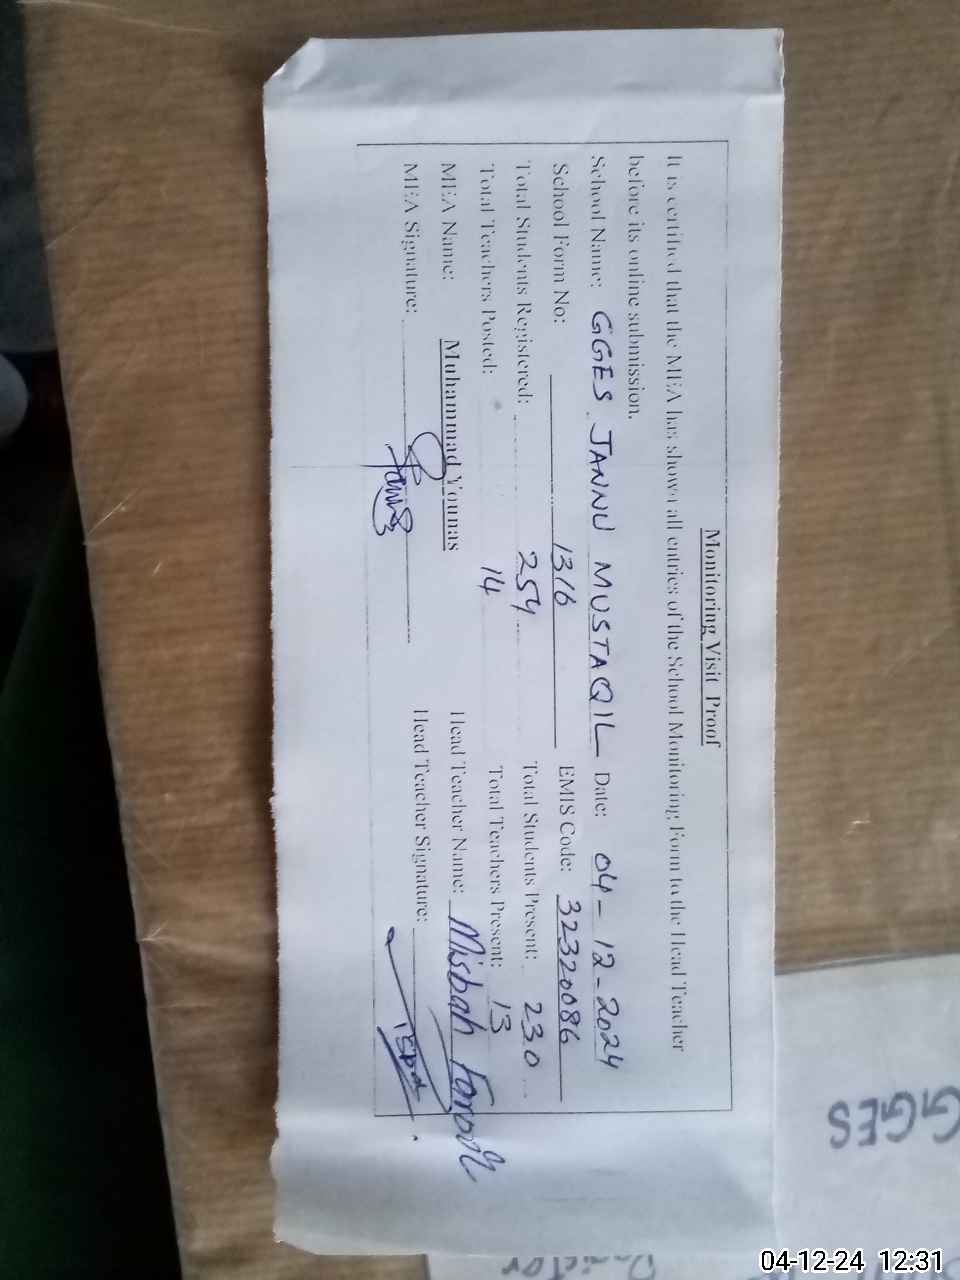 Monitoring Visit Proof
It is certified that the MEA has shown all entries of the School Monitoring Form to the Head Teacher
before its online submission.
School Name: GGES JANNU MUSTAQIL Date: 04-12-2024
School Form No: 1316 EMIS Code: 32320086
Total Students Registered: 254 Total Students Present: 230
Total Teachers Posted: 14 Total Teachers Present: 13
MEA Name: Muhammad Younas Head Teacher Name: Misbah Farooq
MEA Signature: Head Teacher Signature:
GGES
04-12-24 12:31